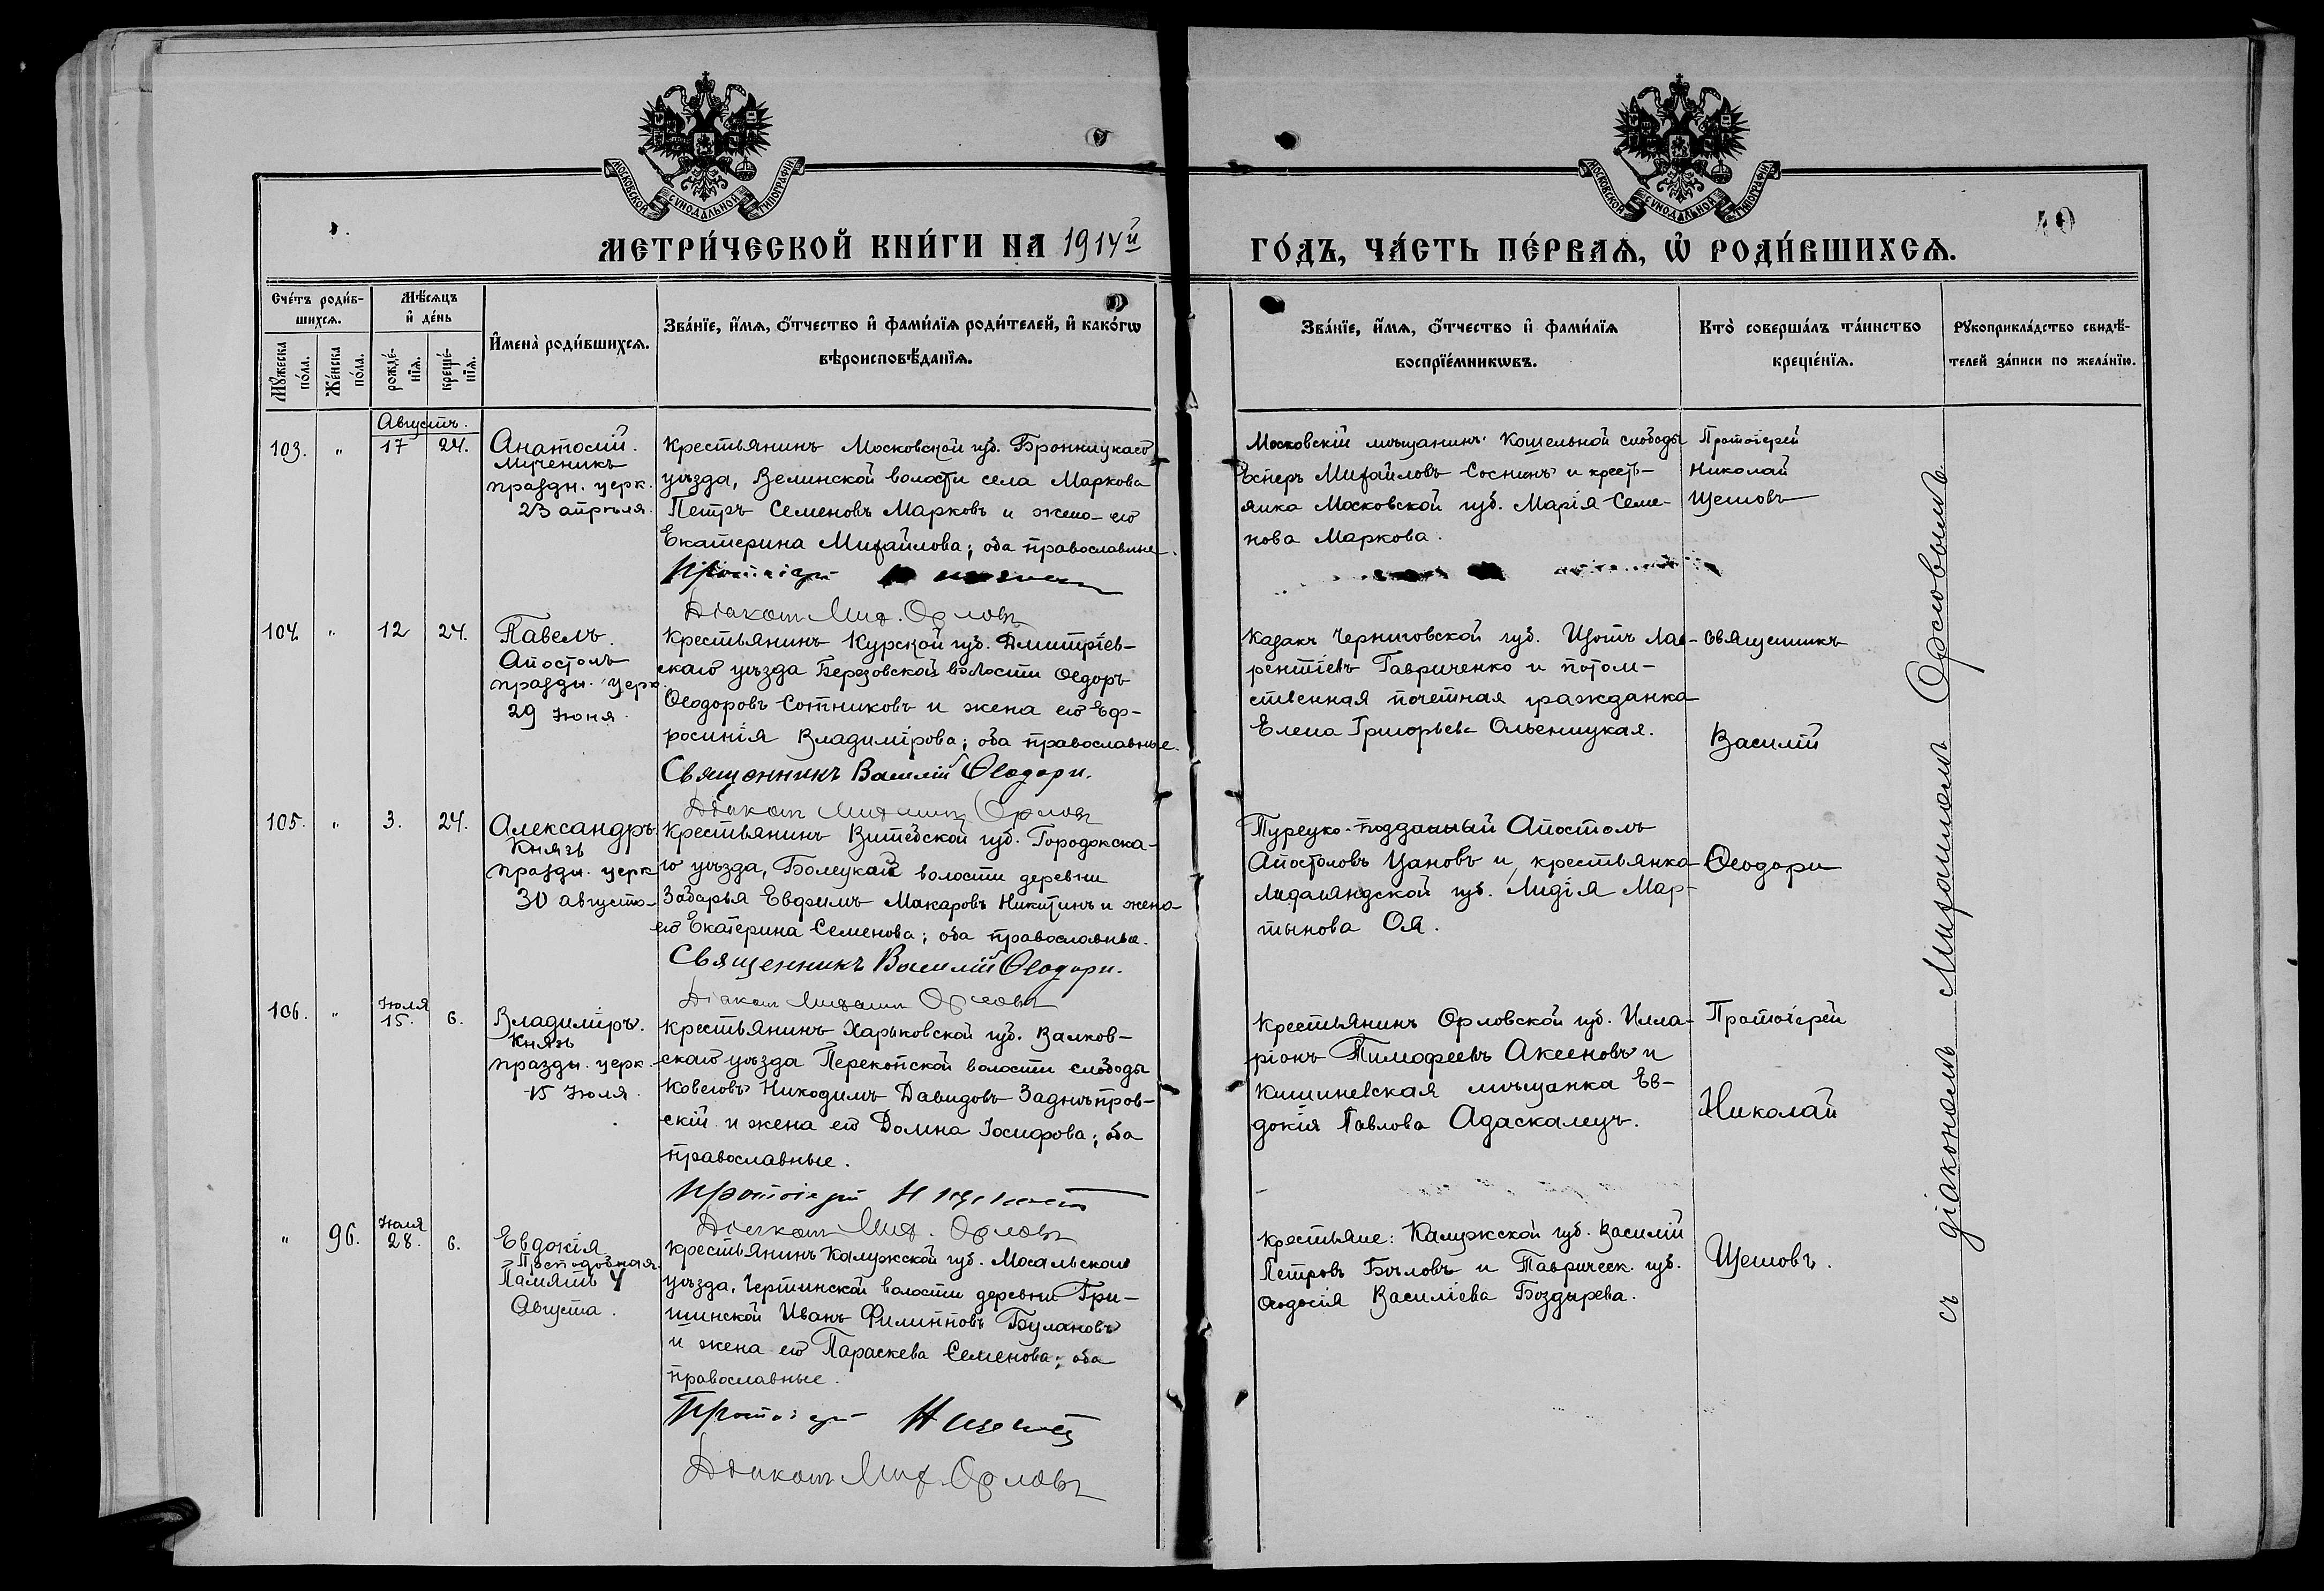 МОСКОВСКОЙ СѴНОДАЛЬНОЙ ТИПОГРАФІИ
МОСКОВСКОЙ СѴНОДАЛЬНОЙ ТИПОГРАФІИ
40
МЕТРИ́ЧЕСКОЙ КНИ́ГИ НА 1914й
ГО́ДЪ, ЧА́СТЬ ПЕ́РВАѦ, Ѡ҆ РОДИ́ВШИХСѦ.
Сче́тъ роди́в-
шихсѧ.
Мꙋ́жеска по́ла.
Же́нска по́ла.
Мѣ́сѧцъ
и҆ де́нь
рожде́-
нїѧ.
креще́-
нїѧ.
И҆мена̀ роди́вшихсѧ.
Зва́нїе, и҆́мѧ, ѻ҆́тчество и҆ фами́лїѧ роди́телей, и҆ како́гѡ
вѣроисповѣ́данїѧ.
Зва́нїе, и҆́мѧ, ѻ҆́тчество и҆ фами́лїѧ
воспрїе́мникѡвъ.
Кто̀ соверша́лъ та́инство
креще́нїѧ.
Рꙋкоприкла́дство свидѣ́-
телей за́писи по жела́нїю.
Августъ.
103. " 17 24.
Анатолій.
Мученикъ
праздн. церк.
23 апрѣля.
Крестьянинъ Московской губ. Бронницкаго
уѣзда, Велинской волости села Маркова
Петръ Семеновъ Марковъ и жена его
Екатерина Михайлова; оба православные.
Протоіерей
Діаконъ Мих. Орловъ
Московскій мѣщанинъ Кошельной слободы
Есперъ Михайловъ Соснинъ и кресть-
янка Московской губ. Марія Семе-
нова Маркова.
Протоіерей
Николай
Щегловъ
104 " 12 24.
Павелъ.
Апостолъ
праздн. церк.
29 Іюня.
Крестьянинъ Курской губ. Дмитріев-
скаго уѣзда Березовской волости Ѳедоръ
Ѳеодоровъ Сотниковъ и жена его Еф-
росинія Владимірова; оба православные.
Священникъ Василій Ѳеодори.
Діаконъ Михаилъ Орловъ
Казакъ Черниговской губ. Изотъ Лав-
рентіевъ Гавриченко и потом-
ственная почетная гражданка
Елена Григорьева Ольеницкая.
Священникъ
Василій
Ѳеодори
105. " 3. 24.
Александръ.
Князь
праздн. церк.
30 августа
Крестьянинъ Витебской губ. Городокска-
го уѣзда, Болецкой волости деревни
Заборья Евфимъ Макаровъ Никитинъ и жена
его Екатерина Семенова; оба православные.
Священникъ Василій Ѳеодори.
Діаконъ Михаилъ Орловъ
Турецко-подданный Апостолъ
Апостоловъ Цановъ и крестьянка
Лифляндской губ. Лидія Мар-
тынова Оя.
106. " Іюля 15. 6.
Владиміръ.
Князь
праздн. церк.
15 Іюля.
Крестьянинъ Харьковской губ. Валков-
скаго уѣзда Перекопской волости слободы
Ковеговъ Никодимъ Давидовъ Заднѣпров-
скій и жена его Домна Іосифова; оба
православные.
Протоіерей Н Щегловъ
Діаконъ Мих. Орловъ
Крестьянинъ Орловской губ. Илла-
ріонъ Тимофеевъ Аксеновъ и
Кишиневская мѣщанка Ев-
докія Павлова Адаскалецъ.
Протоіерей
Николай
Щегловъ.
" 96. Іюля 28. 6.
Евдокія
Преподобная.
Память 4
Августа.
Крестьянинъ Калужской губ. Мосальскаго
уѣзда, Чертинской волости деревни Гри-
шинской Иванъ Филипповъ Булановъ
и жена его Параскева Семенова; оба
православные.
Протоіерей Н Щегловъ
Діаконъ Мих. Орловъ
Крестьяне: Калужской губ. Василій
Петровъ Бѣловъ и Таврическ. губ.
Ѳеодосія Василіева Боздырева.
съ діакономъ Михаиломъ Орловымъ